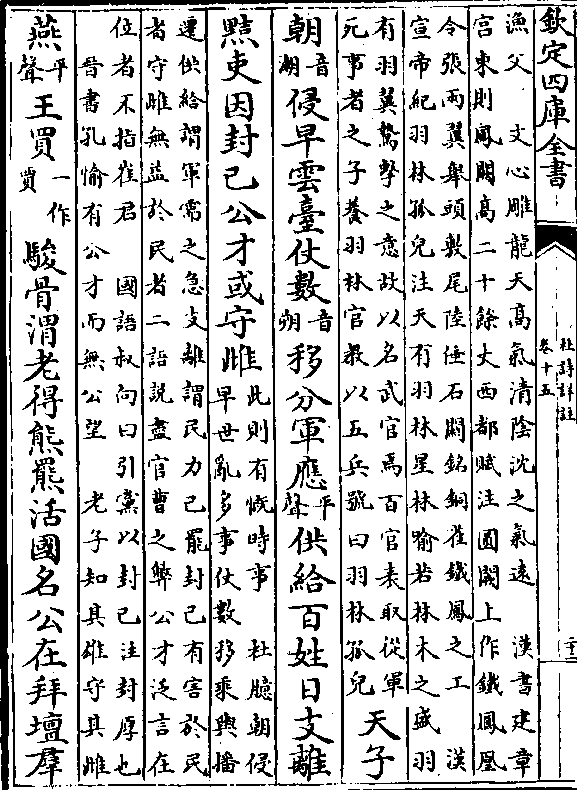 欽定四庫全書
杜詩詳註
卷十五
漁父　文心雕龍天高氣清陰沈之氣遠　漢書建章
宮東則鳳闕高二十餘丈西都賦注圓闕上作鐵鳳凰
令張兩翼舉頭敷尾陸倕石闕銘銅雀鐵鳳之工　漢
宣帝紀羽林孤兒注天有羽林星林喻若林木之盛羽
有羽翼鷙擊之意故以名武官焉百官表取從軍
死事者之子養羽林官教以五兵號曰羽林孤兒
天子
朝音潮侵早雲臺仗數音朔移分軍應平聲供給百姓日支離
黠吏因封己公才或守雌
此則有慨時事　杜臆朝侵
早世亂多事仗數移乘輿播
遷供給謂軍需之急支離謂民力已罷封己有害於民
者守雌無益於民者二語說盡官曹之弊公才泛言在
位者不指崔君　國語叔向曰引黨以封己注封厚也
晉書孔愉有公才而無公望　老子知其雄守其雌
燕平聲王買一作賈駿骨渭老得熊羆活國名公在拜壇羣